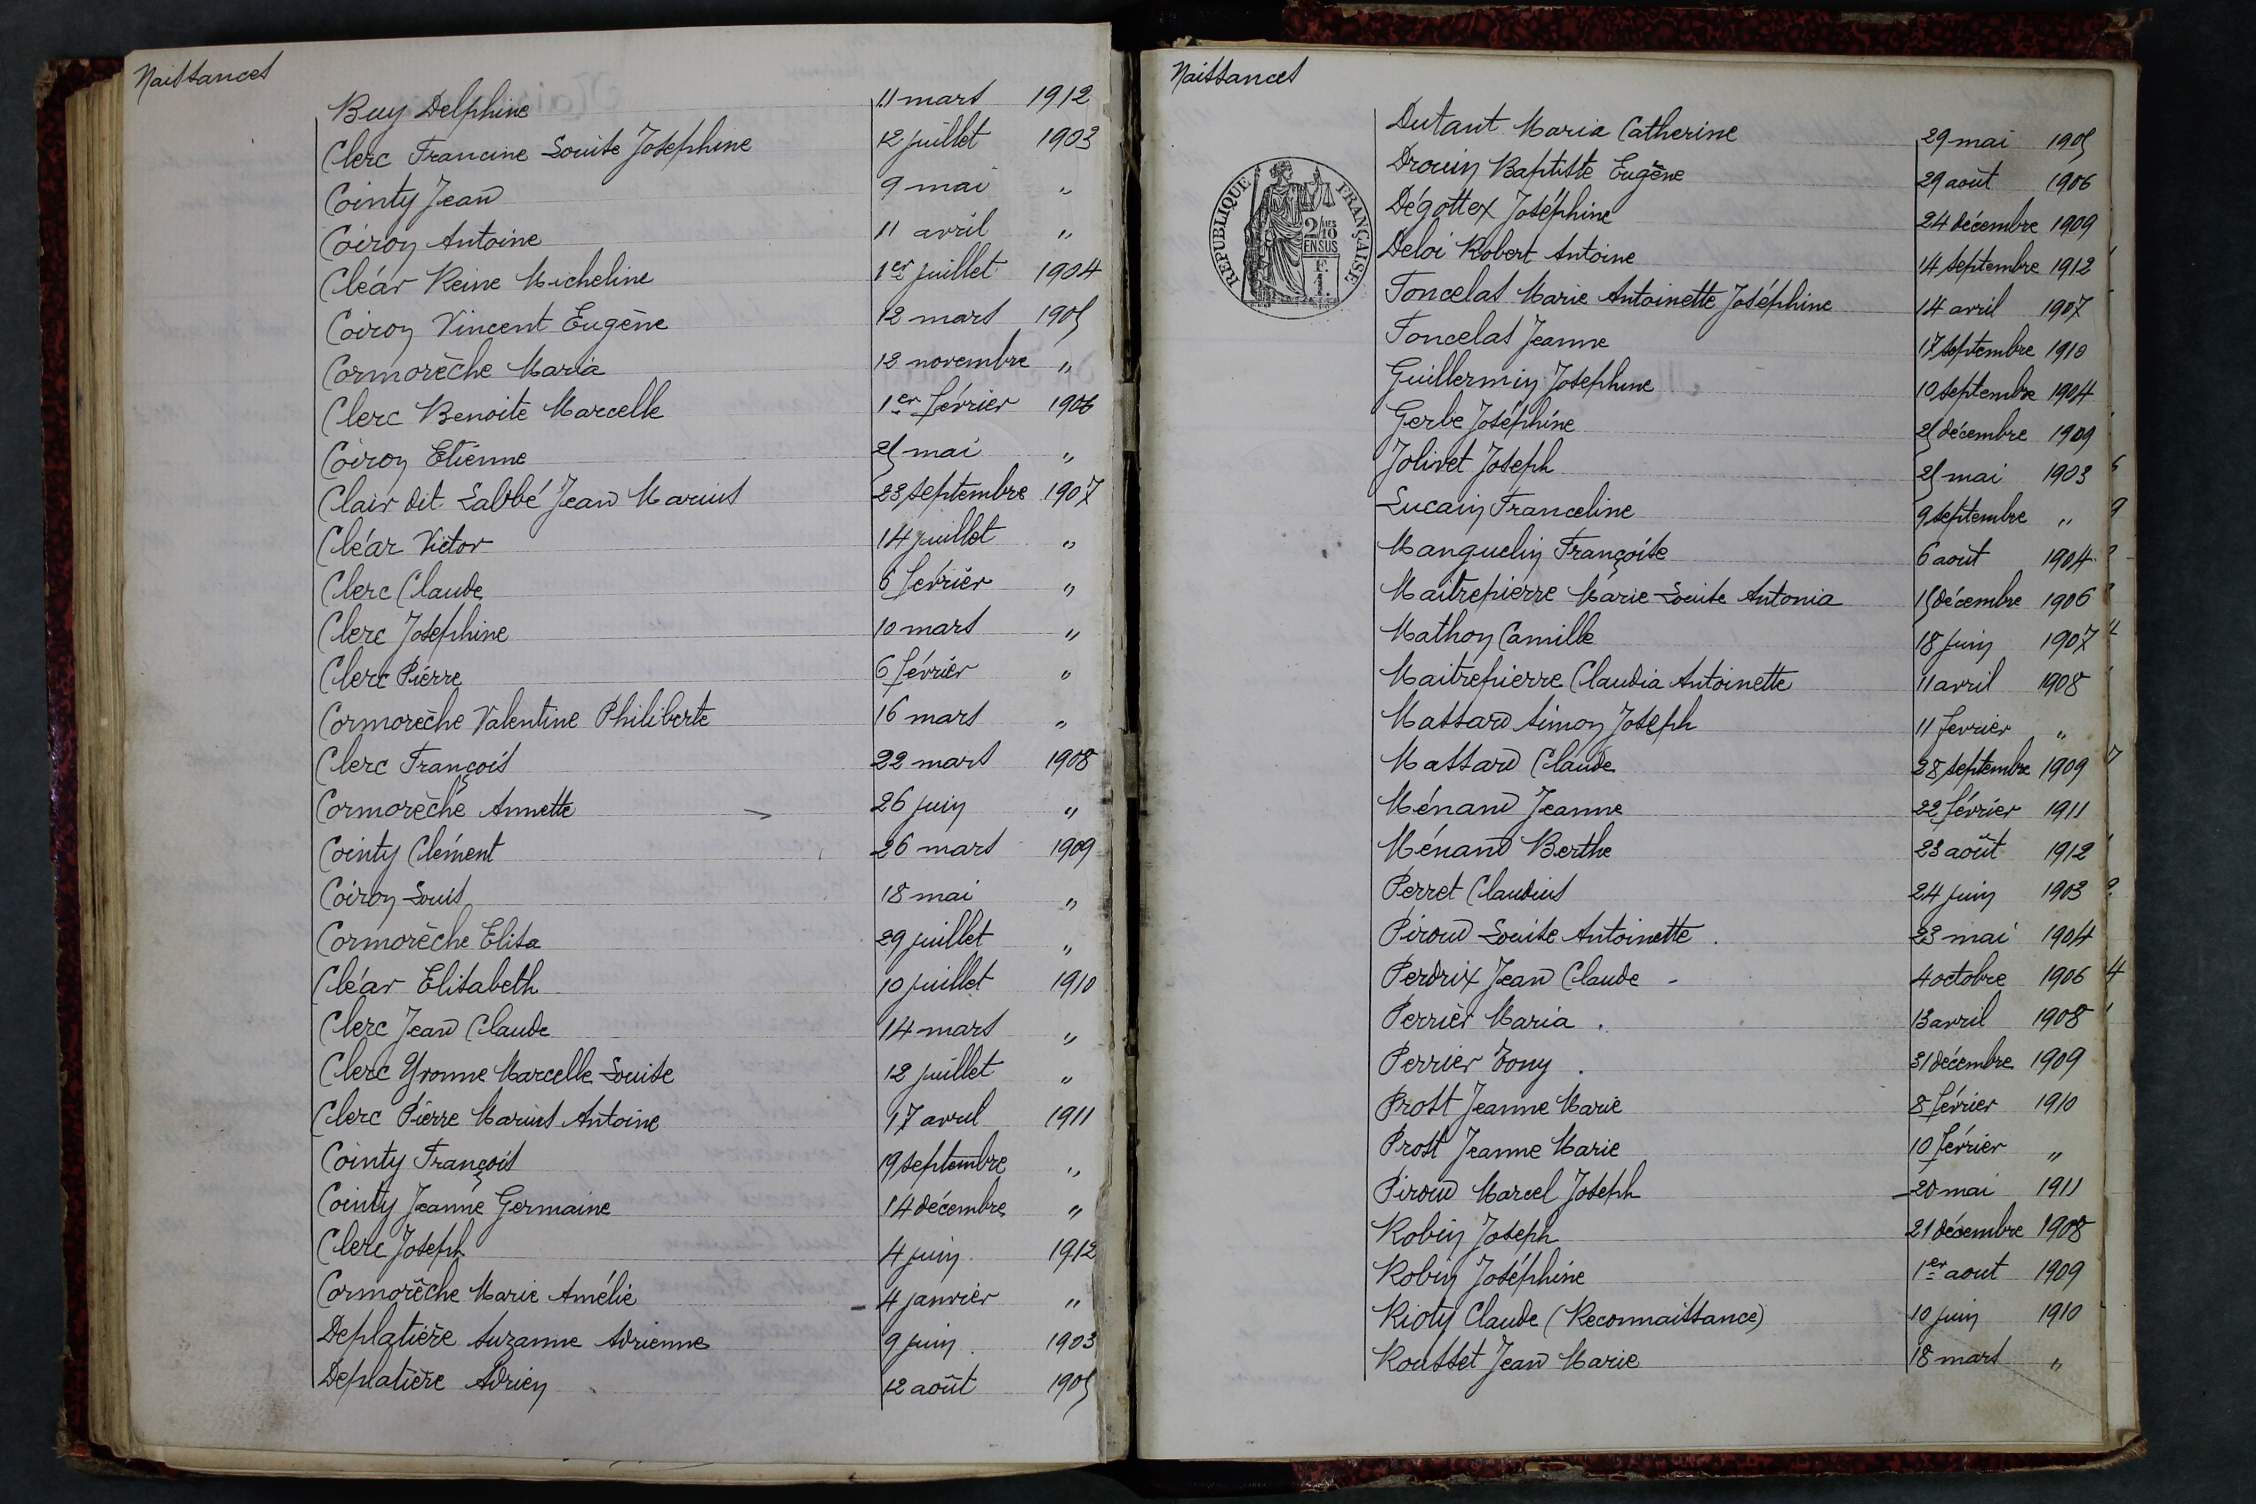 Naissances
Buy Delphine 11 mars 1912
Clerc Francine Louise Joséphine 12 juillet 1903
Cointy Jean 9 mai "
Coiron Antoine 11 avril "
Cléar Reine Micheline 1er juillet 1904
Coiron Vincent Eugène 12 mars 1905
Cormorèche Maria 12 novembre "
Clerc Benoite Marcelle 1er février 1906
Coiron Etienne 25 mai "
Clair dit Labbé Jean Marius 23 septembre 1907
Cléar Victor 14 juillet "
Clerc Claude 6 février "
Clerc Joséphine 10 mars "
Clerc Pierre 6 février "
Cormorèche Valentine Philiberte 16 mars "
Clerc François 22 mars 1908
Cormorèche Annette 26 juin "
Cointy Clément 26 mars 1909
Coiron Louis 18 mai "
Cormorèche Elisa 29 juillet "
Cléar Elisabeth 10 juillet 1910
Clerc Jean Claude 14 mars "
Clerc Yvonne Marcelle Louise 12 juillet "
Clerc Pierre Marius Antoine 17 avril 1911
Cointy François 19 septembre "
Cointy Jeanne Germaine 14 décembre "
Clerc Joseph 4 juin 1912
Cormorèche Marie Amélie 4 janvier "
Deplatière Suzanne Adrienne 9 juin 1903
Deplatière Adrien 12 août 1905
Naissances
RÉPUBLIQUE FRANÇAISE
2/10
EN SUS
F.
1.
Dutant Maria Catherine 29 mai 1905
Drouin Baptiste Eugène 29 août 1906
Dégottex Joséphine 24 décembre 1909
Deloi Robert Antoine 14 septembre 1912
Foncelas Marie Antoinette Joséphine 14 avril 1907
Foncelas Jeanne 17 septembre 1910
Guillermin Joséphine 10 septembre 1904
Gerbe Joséphine 25 décembre 1909
Jolivet Joseph 25 mai 1903
Lucain Franceline 9 septembre "
Manguelin Françoise 6 août 1904
Maitrepierre Marie-Louise Antonia 15 décembre 1906
Mathon Camille 18 juin 1907
Maitrepierre Claudia Antoinette 11 avril 1908
Massard Simon Joseph 11 fevrier "
Massard Claude 28 septembre 1909
Ménand Jeanne 22 février 1911
Ménand Berthe 23 août 1912
Perret Claudius 24 juin 1903
Piroud Louise Antoinette 23 mai 1904
Perdrix Jean Claude 4 octobre 1906
Perrier Maria 13 avril 1908
Perrier Tony 31 décembre 1909
Prost Jeanne Marie 8 février 1910
Prost Jeanne Marie 10 février "
Piroud Marcel Joseph 20 mai 1911
Robin Joseph 21 décembre 1908
Robin Joséphine 1er aout 1909
Rioty Claude (Reconnaissance) 10 juin 1910
Rousset Jean Marie 18 mars "